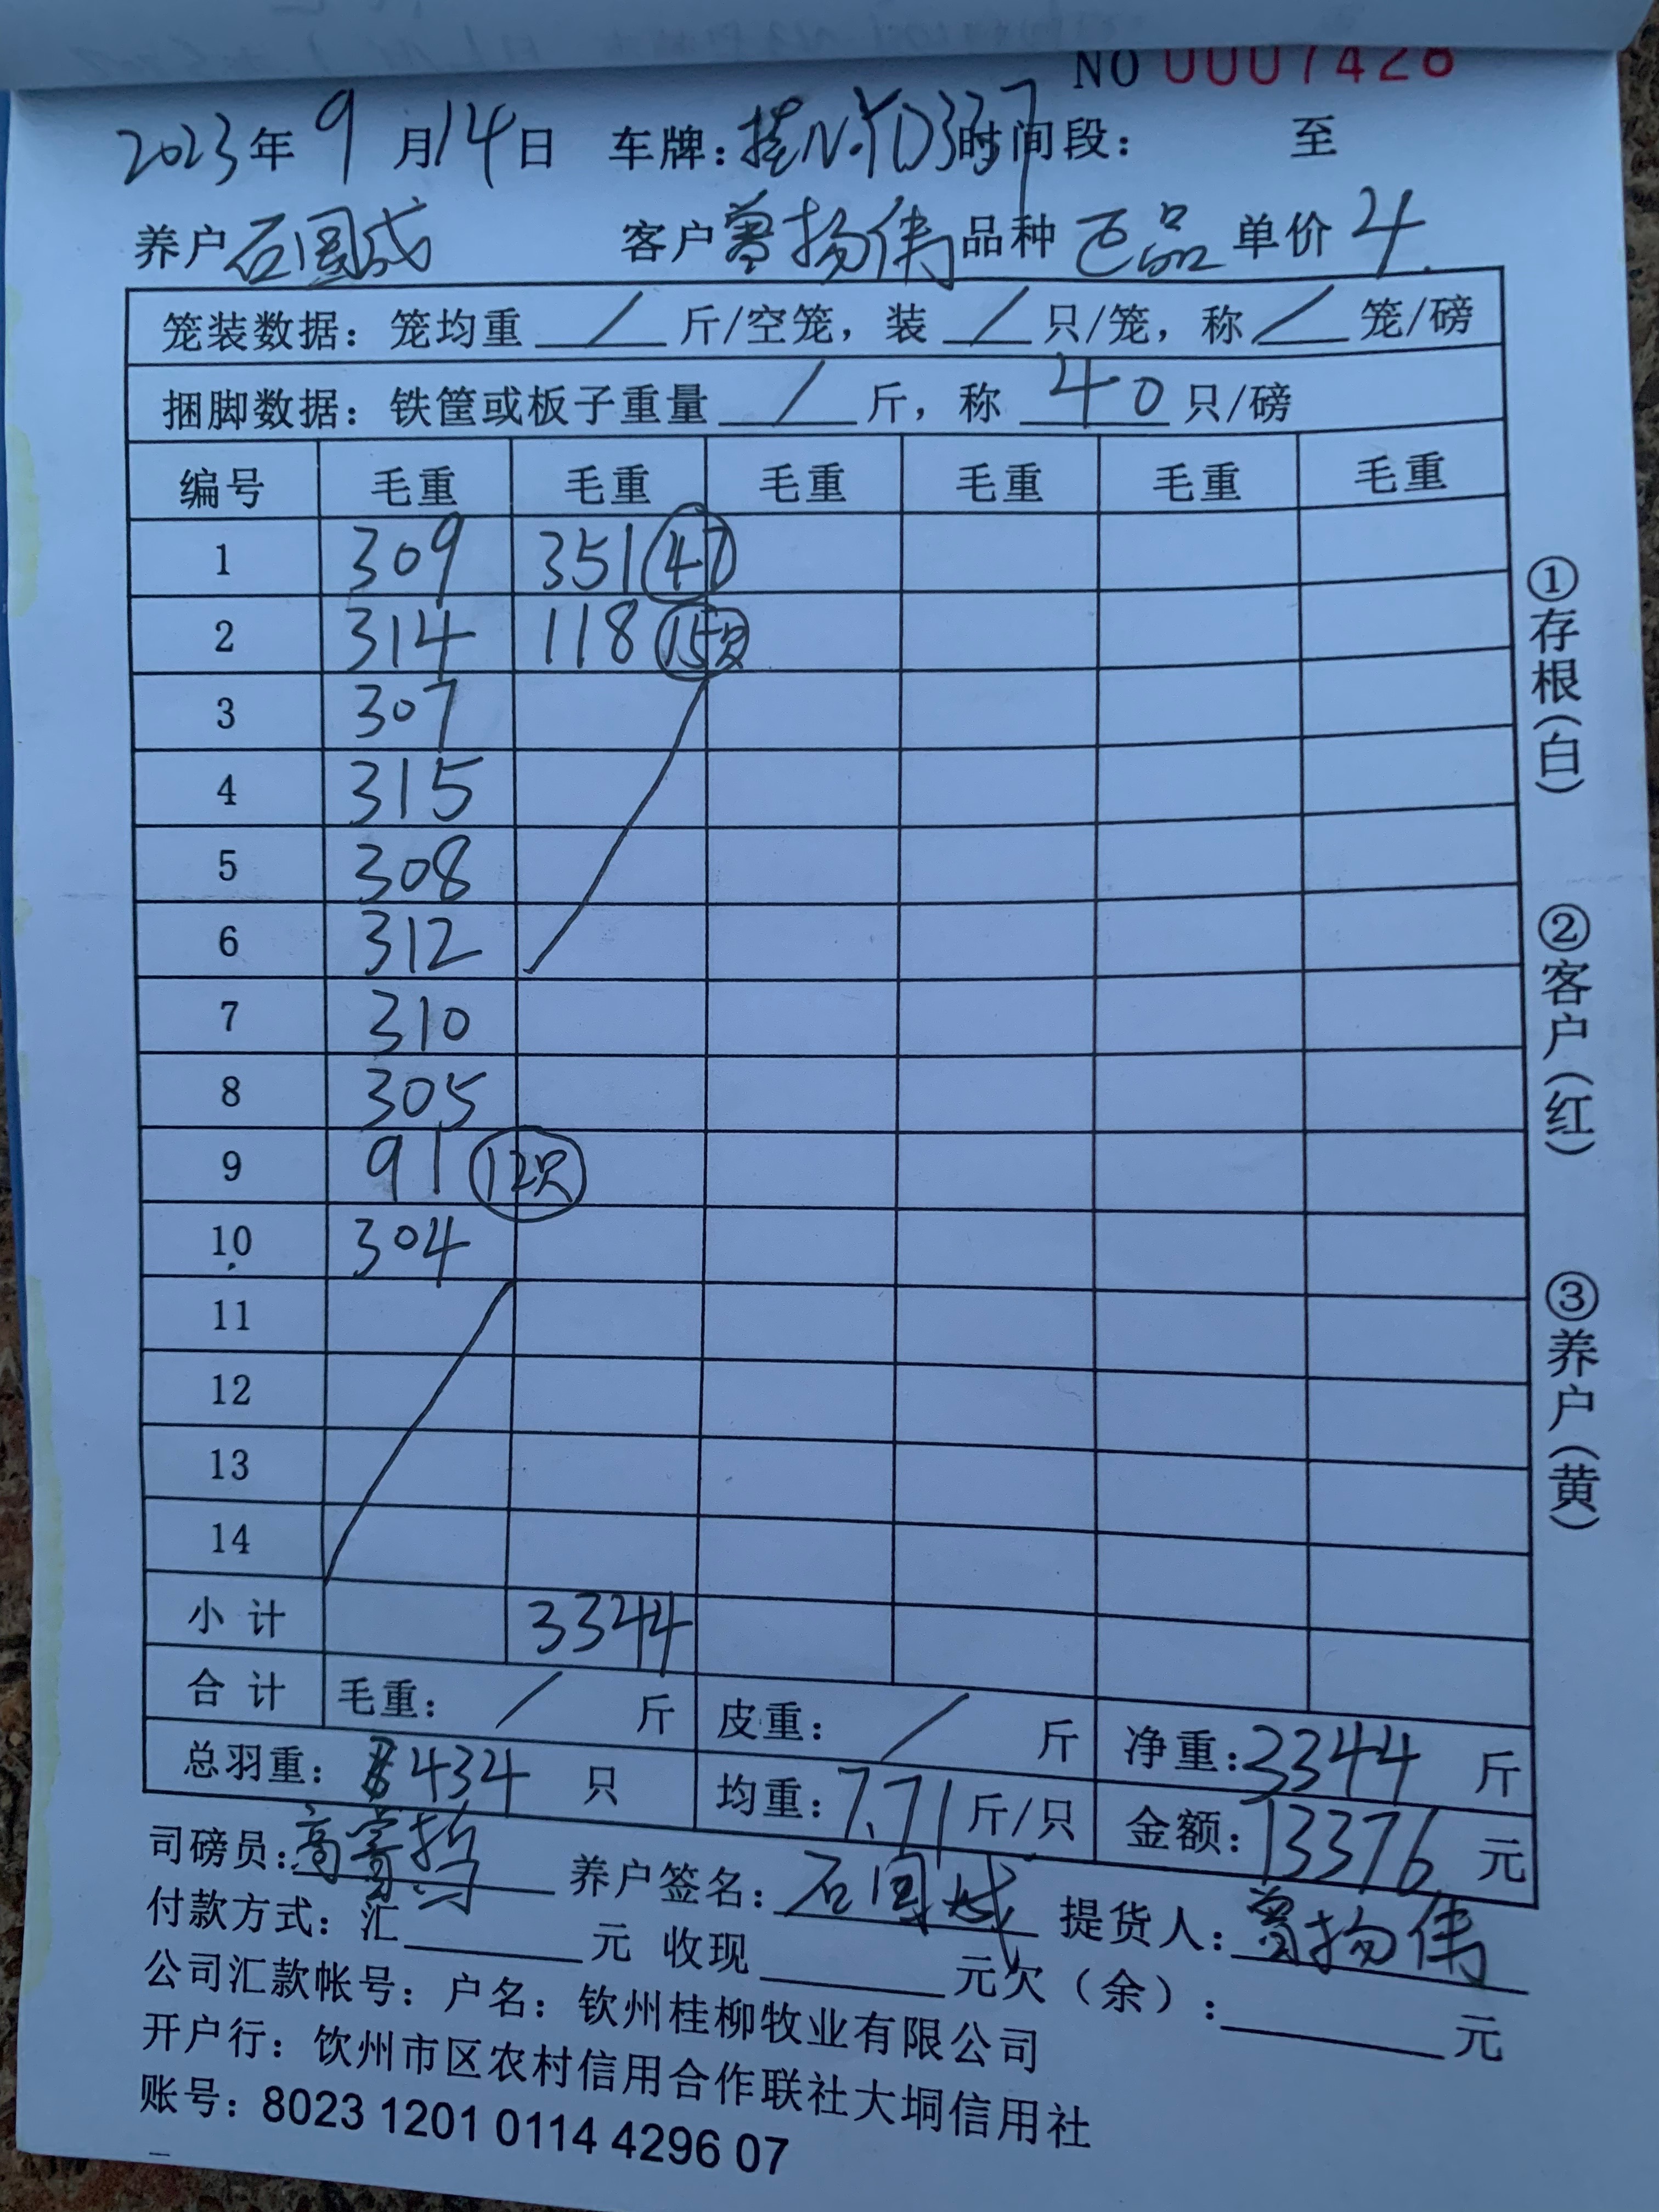 NO 0007428
2023年9月14日 车牌:桂N·YD337 时间段: 至
养户 石国成 客户 曾扬伟 品种 正品 单价 4.
笼装数据: 笼均重 / 斤/空笼, 装 / 只/笼, 称 / 笼/磅
捆脚数据: 铁筐或板子重量 / 斤, 称 40 只/磅
编号 毛重 毛重 毛重 毛重 毛重 毛重
1 309 351 47
2 314 118 15只
3 307
4 315
5 308
6 312
7 310
8 305
9 91 12只
10 304
11
12
13
14
小计 3344
合计 毛重: / 斤 皮重: / 斤 净重: 3344 斤
总羽重: 434 只 均重: 7.71 斤/只 金额: 13376 元
司磅员: 高 养户签名: 石国成 提货人: 曾扬伟
付款方式: 汇 元 收现 元欠(余): 元
公司汇款帐号: 户名: 钦州桂柳牧业有限公司
开户行: 钦州市区农村信用合作联社大垌信用社
账号: 8023 1201 0114 4296 07
①存根(白)
②客户(红)
③养户(黄)